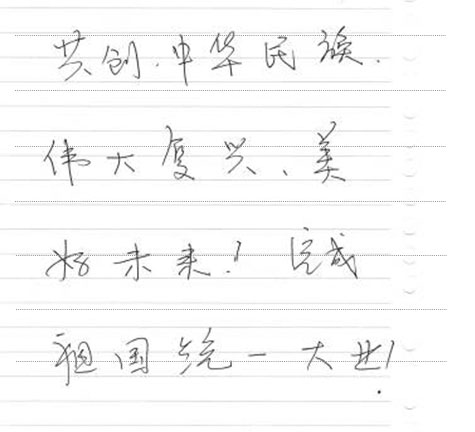 共创.中华民族.
伟大复兴、美
好未来！完成
祖国统一大业！